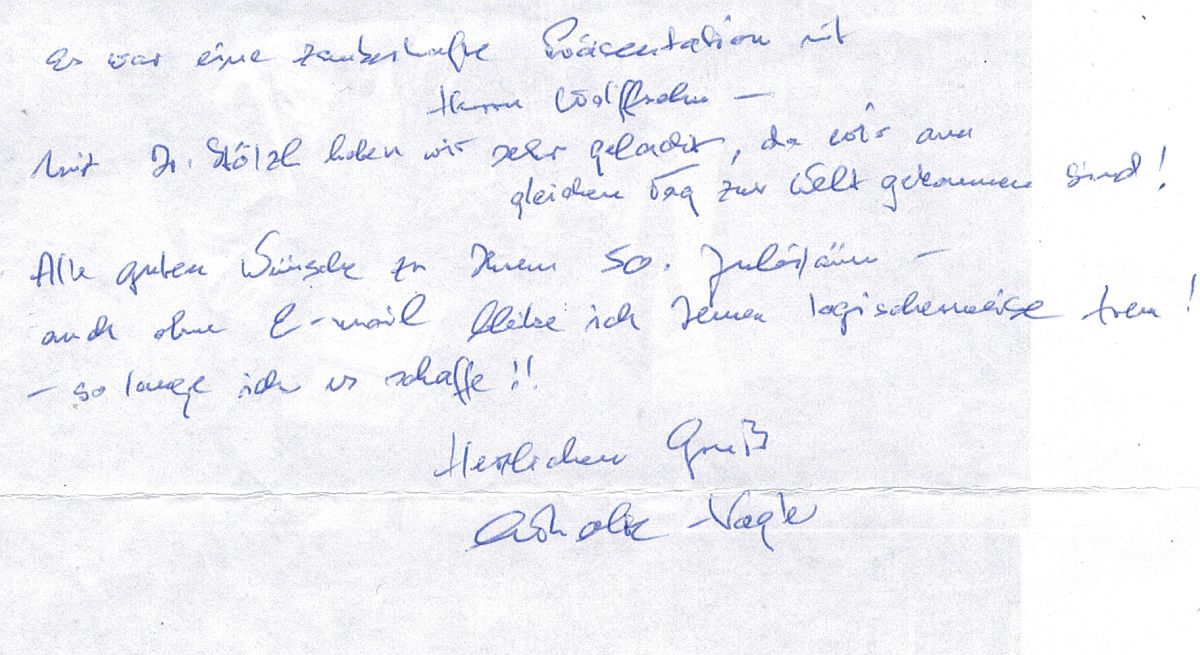 Es war eine zauberhafte Präsentation mit
Herrn Wolffsohn –
Mit Dr. Stölzl haben wir sehr gelacht, da wir am
gleichen Tag zur Welt gekommen sind!
Alle guten Wünsche zu Ihrem 50. Jubiläum –
auch ohne E-mail bleibe ich Ihnen logischerweise treu!
– so lange ich es schaffe!!
Herzlichen Gruß